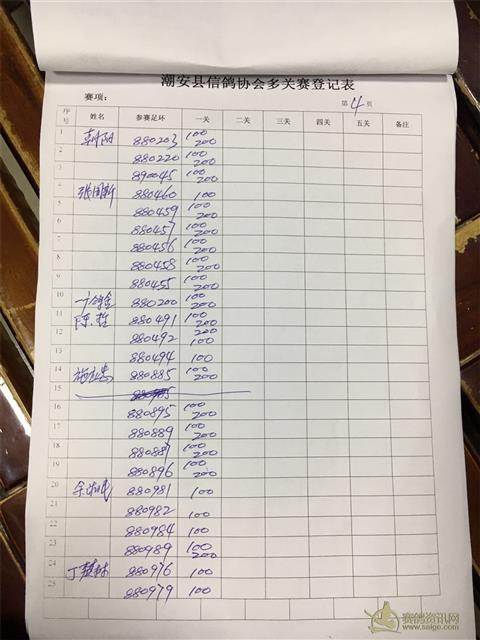 潮安县信鸽协会多关赛登记表
赛项: 第4页
序号 姓名 参赛足环 一关 二关 三关 四关 五关 备注
1 朝阳 880203 100 200
2 880220 100 200
3 890045 100 200
4 张国新 880460 100
5 880459 100 200
6 880457 100 200
7 880456 100 200
8 880458 100 200
9 880455 100 200
10 880200 100 200
11 陈哲 880491 100 200
12 880492 100
13 880494 100
14 880885 100 200
15
16 880895 100 200
17 880889 100 200
18 880887 100 200
19 880896 100 200
20 880981 100
21 880982 100
22 880984 100
23 880989 100 200
24 880976 100
25 880979 100
赛鸽资讯网
www.saige.com